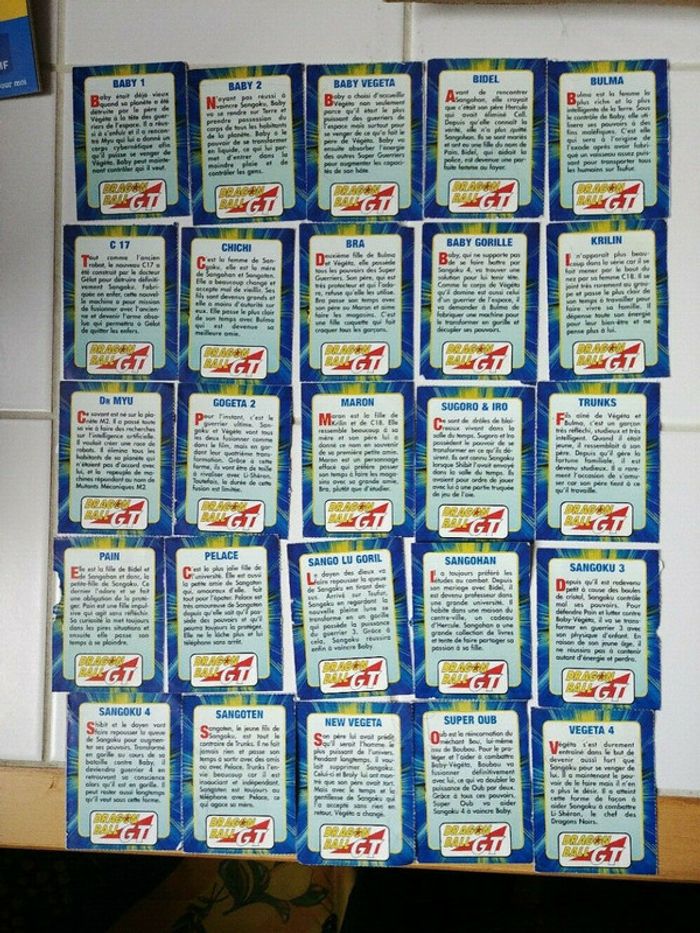 MF
our moi
BABY 1
Baby était déjà vieux
quand sa planète a été
détruite par le père de
Végéta à la tête des guer-
riers de l'Espace. Il a réus-
si à s'enfuir et il a rencon-
tré Myu qui lui a donné un
corps cybernétique afin
qu'il puisse se venger de
Végéta. Baby peut mainte-
nant contrôler qui il veut.
DRAGON
BALL GT
BABY 2
N'ayant pas réussi à
vaincre Sangoku, Baby
va se rendre sur Terre et
prendre possession du
corps de tous les habitants
de la planète. Baby a le
pouvoir de se transformer
en liquide, ce qui lui per-
met d'entrer dans la
moindre plaie et de
contrôler les gens.
DRAGON
BALL GT
BABY VEGETA
Baby a choisi d'accueillir
Végéta non seulement
parce qu'il était le plus
puissant des guerriers de
l'espace mais surtout pour
se venger de ce qu'a fait le
père de Végéta. Baby va
ensuite absorber l'énergie
des autres Super Guerriers
pour augmenter les capaci-
tés de son hôte.
DRAGON
BALL GT
BIDEL
Avant de rencontrer
Sangohan, elle croyait
que c'était son père Hercule
qui avait éliminé Cell.
Depuis qu'elle connaît la
vérité, elle n'a plus quitté
Sangohan. Ils se sont mariés
et ont eu une fille du nom de
Pain. Bidel, qui aidait la
police, est devenue une par-
faite femme au foyer.
DRAGON
BALL GT
BULMA
Bulma est la femme la
plus riche et la plus
intelligente de la Terre. Sous
le contrôle de Baby, elle
offrira ses pouvoirs à des
fins maléfiques. C'est elle
qui sera à l'origine de
l'exode après avoir fabri-
qué un vaisseau assez puis-
sant pour transporter tous
les humains sur Tsufur.
DRAGON
BALL GT
C 17
Tout comme l'ancien
robot, le nouveau C17 a
été construit par le docteur
Gélot pour détruire définiti-
vement Sangoku. Fabri-
quée en enfer, cette nouvel-
le machine a pour mission
de fusionner avec l'ancien-
ne et devenir l'arme abso-
lue qui permettra à Gélot
de quitter les enfers.
DRAGON
BALL GT
CHICHI
C'est la femme de San-
goku, elle est la mère
de Sangohan et Sangoten.
Elle a beaucoup changé et
accepte mal de vieillir. Ses
fils sont devenus grands et
elle a moins d'autorité sur
eux. Elle passe le plus clair
de son temps avec Bulma
qui est devenue sa
meilleure amie.
DRAGON
BALL GT
BRA
Deuxième fille de Bulma
et Végéta, elle possède
tous les pouvoirs des Super
Guerriers. Son père, qui est
très protecteur et qui l'ado-
re, refuse qu'elle les utilise.
Bra passe son temps avec
son père ou Maron et aime
faire les magasins. C'est
une fille coquette qui fait
craquer tous les garçons.
DRAGON
BALL GT
BABY GORILLE
Baby, qui ne supporte pas
de se faire battre par
Sangoku 4, va trouver une
solution pour lui tenir tête.
Comme le corps de Végéta
qu'il domine est aussi celui
d'un guerrier de l'espace, il
va demander à Bulma de
fabriquer une machine pour
le transformer en gorille et
décupler ses pouvoirs.
DRAGON
BALL GT
KRILIN
Il n'apparaît plus beau-
coup dans la série car il se
fait mener par le bout du
nez par sa femme C18. Il se
joint très rarement au grou-
pe et passe le plus clair de
son temps à travailler pour
faire vivre sa famille. Il
dépense toute son énergie
pour leur bien-être et ne
pense plus à lui.
DRAGON
BALL GT
DR MYU
Ce savant est né sur la pla-
nète M2. Il a passé toute
sa vie à faire des recherches
sur l'intelligence artificielle.
Il voulait créer une race de
robots. Il élimina tous les
habitants de sa planète qui
n'étaient pas d'accord avec
lui, et la repeupla de ma-
chines répondant au nom de
Mutants Mécaniques M2.
DRAGON
BALL GT
GOGETA 2
Pour l'instant, c'est le
guerrier ultime. San-
goku et Végéta vont tous
les deux fusionner comme
dans le film, mais en gar-
dant leur quatrième trans-
formation. Grâce à cette
forme, ils vont être de taille
à rivaliser avec Li-Shéron.
Toutefois, la durée de cette
fusion est limitée.
DRAGON
BALL GT
MARON
Maron est la fille de
Krilin et de C18. Elle
ressemble beaucoup à sa
mère et son père lui a
donné ce nom en souvenir
de sa première petite amie.
Maron est un personnage
effacé qui préfère passer
son temps à faire les maga-
sins avec sa grande amie,
Bra, plutôt que d'étudier.
DRAGON
BALL GT
SUGORO & IRO
Ce sont de drôles de blai-
reaux vivant dans la
salle du temps. Sugoro et Iro
possèdent le pouvoir de se
transformer en ce qu'ils dé-
sirent. Ils ont connu Sangoku
lorsque Shibit l'avait envoyé
dans la salle du temps. Ils
avaient pour ordre de jouer
avec lui à une partie truquée
de jeu de l'oie.
DRAGON
BALL GT
TRUNKS
Fils aîné de Végéta et
Bulma, c'est un garçon
très réfléchi, studieux et très
intelligent. Quand il était
jeune, il ressemblait à son
père. Depuis qu'il gère la
fortune familiale, il est
devenu studieux. Il a rare-
ment l'occasion de s'amu-
ser car son père tient à ce
qu'il travaille.
DRAGON
BALL GT
PAIN
Elle est la fille de Bidel et
de Sangohan et donc, la
petite-fille de Sangoku. Ce
dernier l'adore et se fait
une obligation de la proté-
ger. Pain est une fille impul-
sive qui agit sans réfléchir.
Sa curiosité la met toujours
dans les pires situations et
ensuite elle passe son
temps à se plaindre.
DRAGON
BALL GT
PELACE
C'est la plus jolie fille de
l'université. Elle est aussi
la petite amie de Sangoten
qui, amoureux d'elle, fait
tout pour l'épater. Pelace est
très amoureuse de Sangoten
depuis qu'elle sait qu'il pos-
sède des pouvoirs et qu'il
pourra toujours la protéger.
Elle ne le lâche plus et lui
téléphone sans arrêt.
DRAGON
BALL GT
SANGO LU GORIL
Le doyen des dieux va
faire repousser la queue
de Sangoku en tirant des-
sus. Arrivé sur Tsufur,
Sangoku en regardant la
nouvelle pleine lune se
transforme en un gorille
qui possède la puissance
du guerrier 3. Grâce à
cela, Sangoku réussira
enfin à vaincre Baby.
DRAGON
BALL GT
SANGOHAN
Il a toujours préféré les
études au combat. Depuis
son mariage avec Bidel, il
est devenu professeur dans
une grande université. Il
habite dans une maison du
centre-ville, un cadeau
d'Hercule. Sangohan a une
grande collection de livres
et tente de faire partager sa
passion à sa fille.
DRAGON
BALL GT
SANGOKU 3
Depuis qu'il est redevenu
petit à cause des boules
de cristal, Sangoku contrôle
mal ses pouvoirs. Pour
défendre Pain et lutter contre
Baby-Végéta, il va se trans-
former en guerrier 3 avec
son physique d'enfant. En
raison de son jeune âge, il
ne réussira pas à contenir
autant d'énergie et perdra.
DRAGON
BALL GT
SANGOKU 4
Shibit et le doyen vont
faire repousser la queue
de Sangoku pour augmen-
ter ses pouvoirs. Transformé
en gorille au cours de sa
bataille contre Baby, il
deviendra guerrier 4 en
retrouvant sa conscience
alors qu'il est en gorille. Il
peut rester aussi longtemps
qu'il veut sous cette forme.
DRAGON
BALL GT
SANGOTEN
Sangoten, le jeune fils de
Sangoku, est tout le
contraire de Trunks. Il ne fait
jamais rien et passe son
temps à sortir avec des amis
ou avec Pelace. Trunks l'en-
vie beaucoup car il est
insouciant et indépendant.
Sangoten est toujours au
téléphone avec Pelace, ce
qui agace sa mère.
DRAGON
BALL GT
NEW VEGETA
Son père lui avait prédit
qu'il serait l'homme le
plus puissant de l'univers.
Pendant longtemps, il vou-
lait supprimer Sangoku.
Celui-ci et Broly lui ont mon-
tré que son père avait tort.
Mais avec le temps et la
gentillesse de Sangoku qui
l'a accepté sans rien en
retour, Végéta a changé.
DRAGON
BALL GT
SUPER OUB
Oub est la réincarnation du
méchant Bou, lui-même
issu de Boubou. Pour le pro-
téger et l'aider à combattre
Baby-Végéta, Boubou va
fusionner définitivement
avec lui, ce qui va doubler la
puissance de Oub par deux.
Grâce à tous ces pouvoirs,
Super Oub va aider
Sangoku 4 à vaincre Baby.
DRAGON
BALL GT
VEGETA 4
Végéta s'est durement
entraîné dans le but de
devenir aussi fort que
Sangoku pour se venger de
lui. Il a maintenant le pou-
voir de le faire mais il n'en
a plus le désir. Il a atteint
cette forme de façon à
aider Sangoku à combattre
Li-Shéron, le chef des
Dragons Noirs.
DRAGON
BALL GT